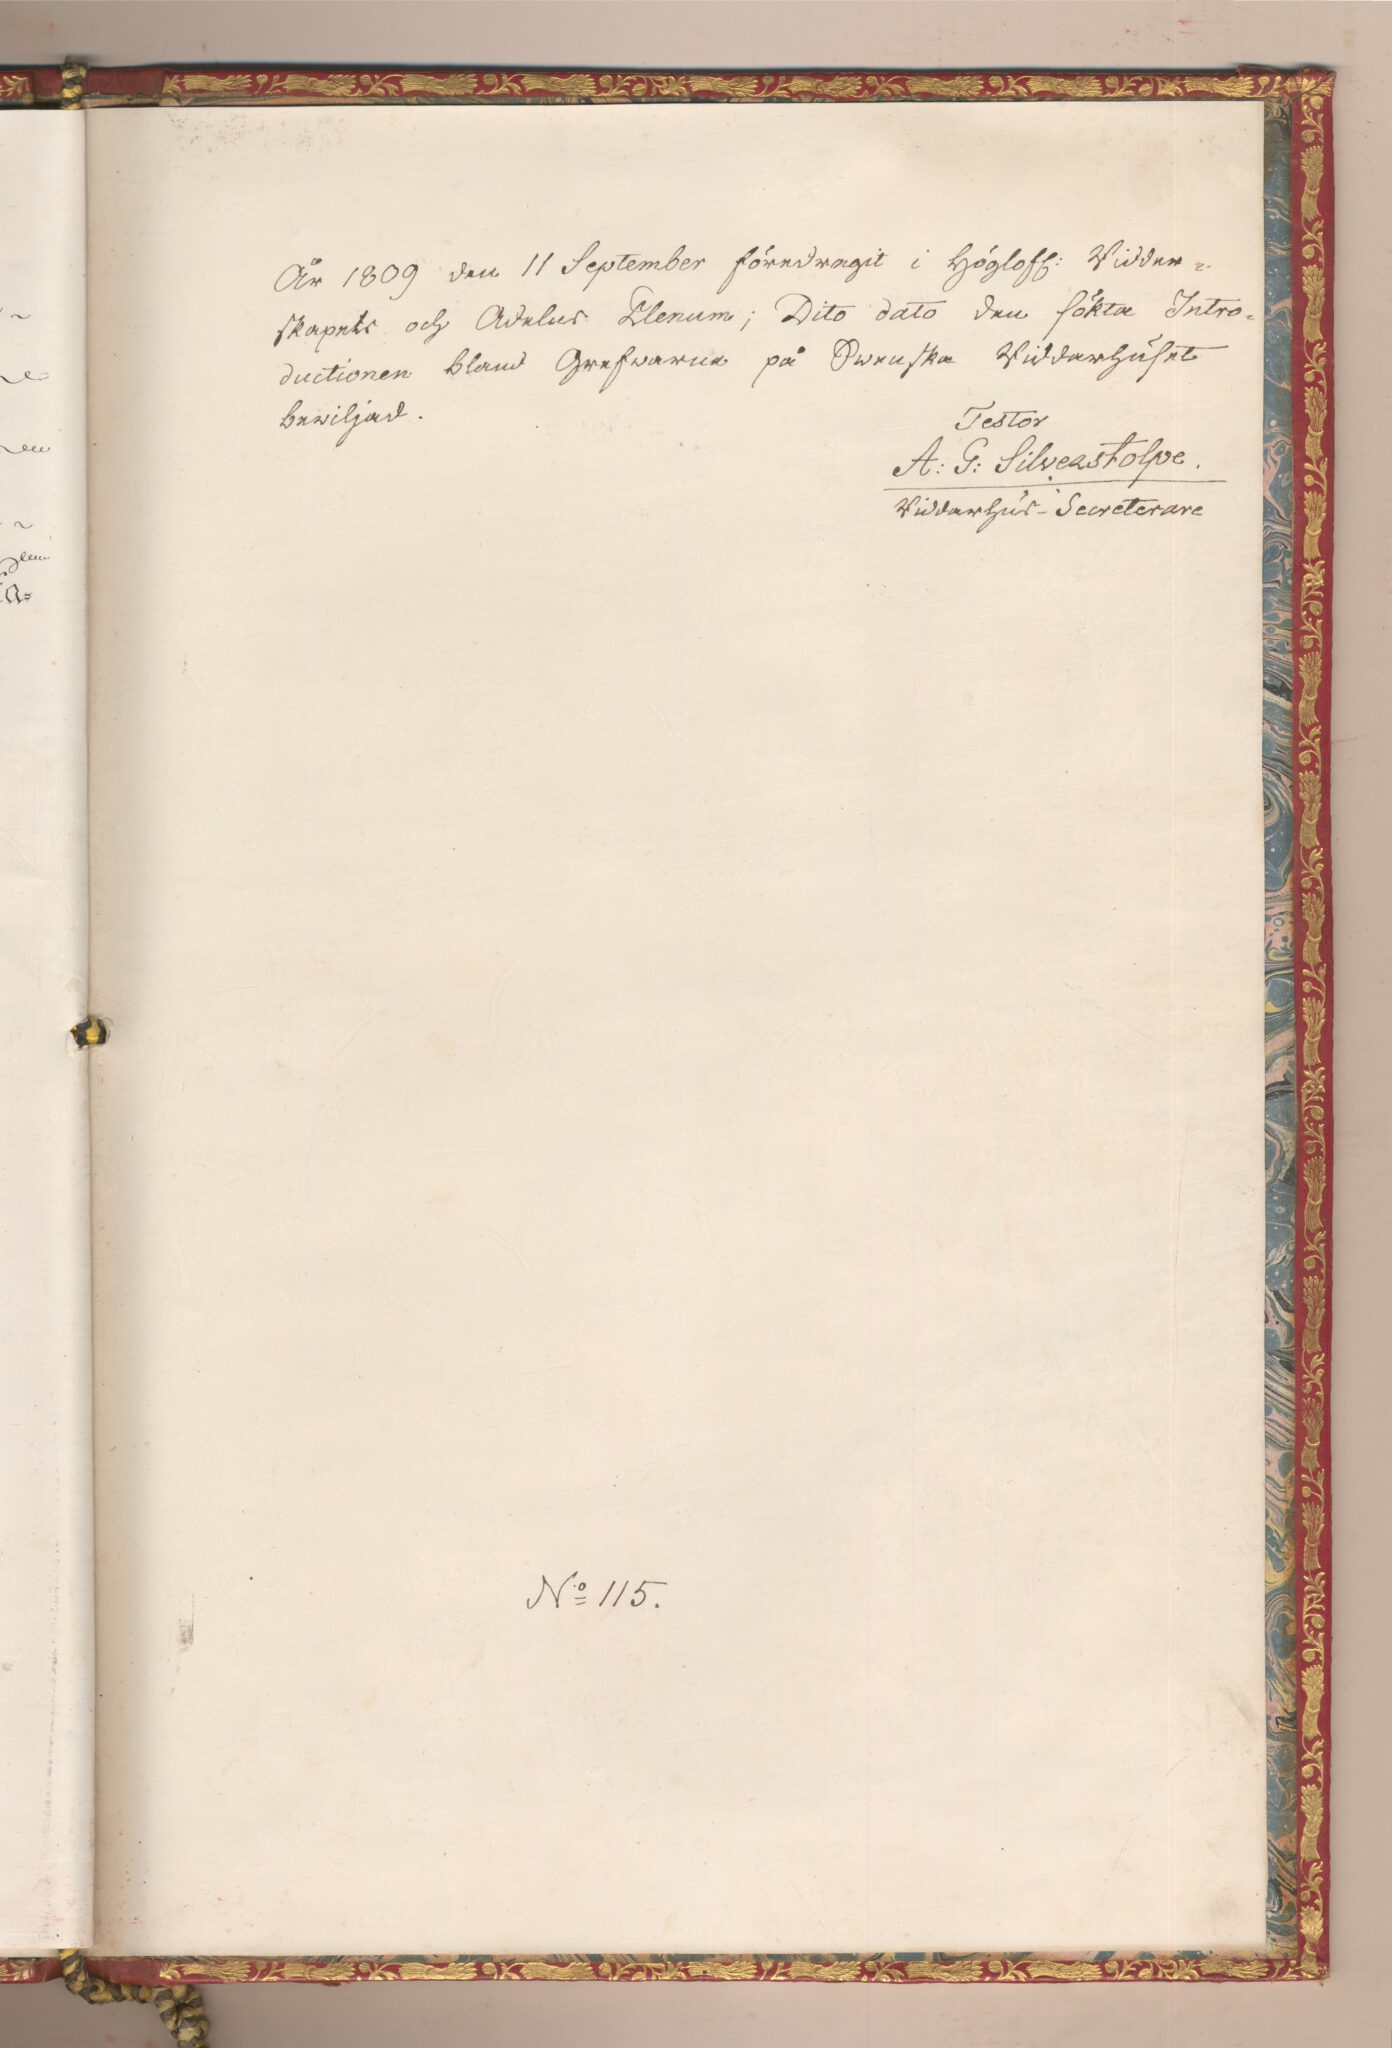 År 1809 den 11 September föredragit i Höglofl: Ridder-
skapets och Adelns Plenum; Dito dato den sökta Intro-
ductionen bland Grefvarne på Swenska Riddarhúset
bewiljad.
Testor
A: G: Silverstolpe.
Riddarhús-Secreterare
No 115.